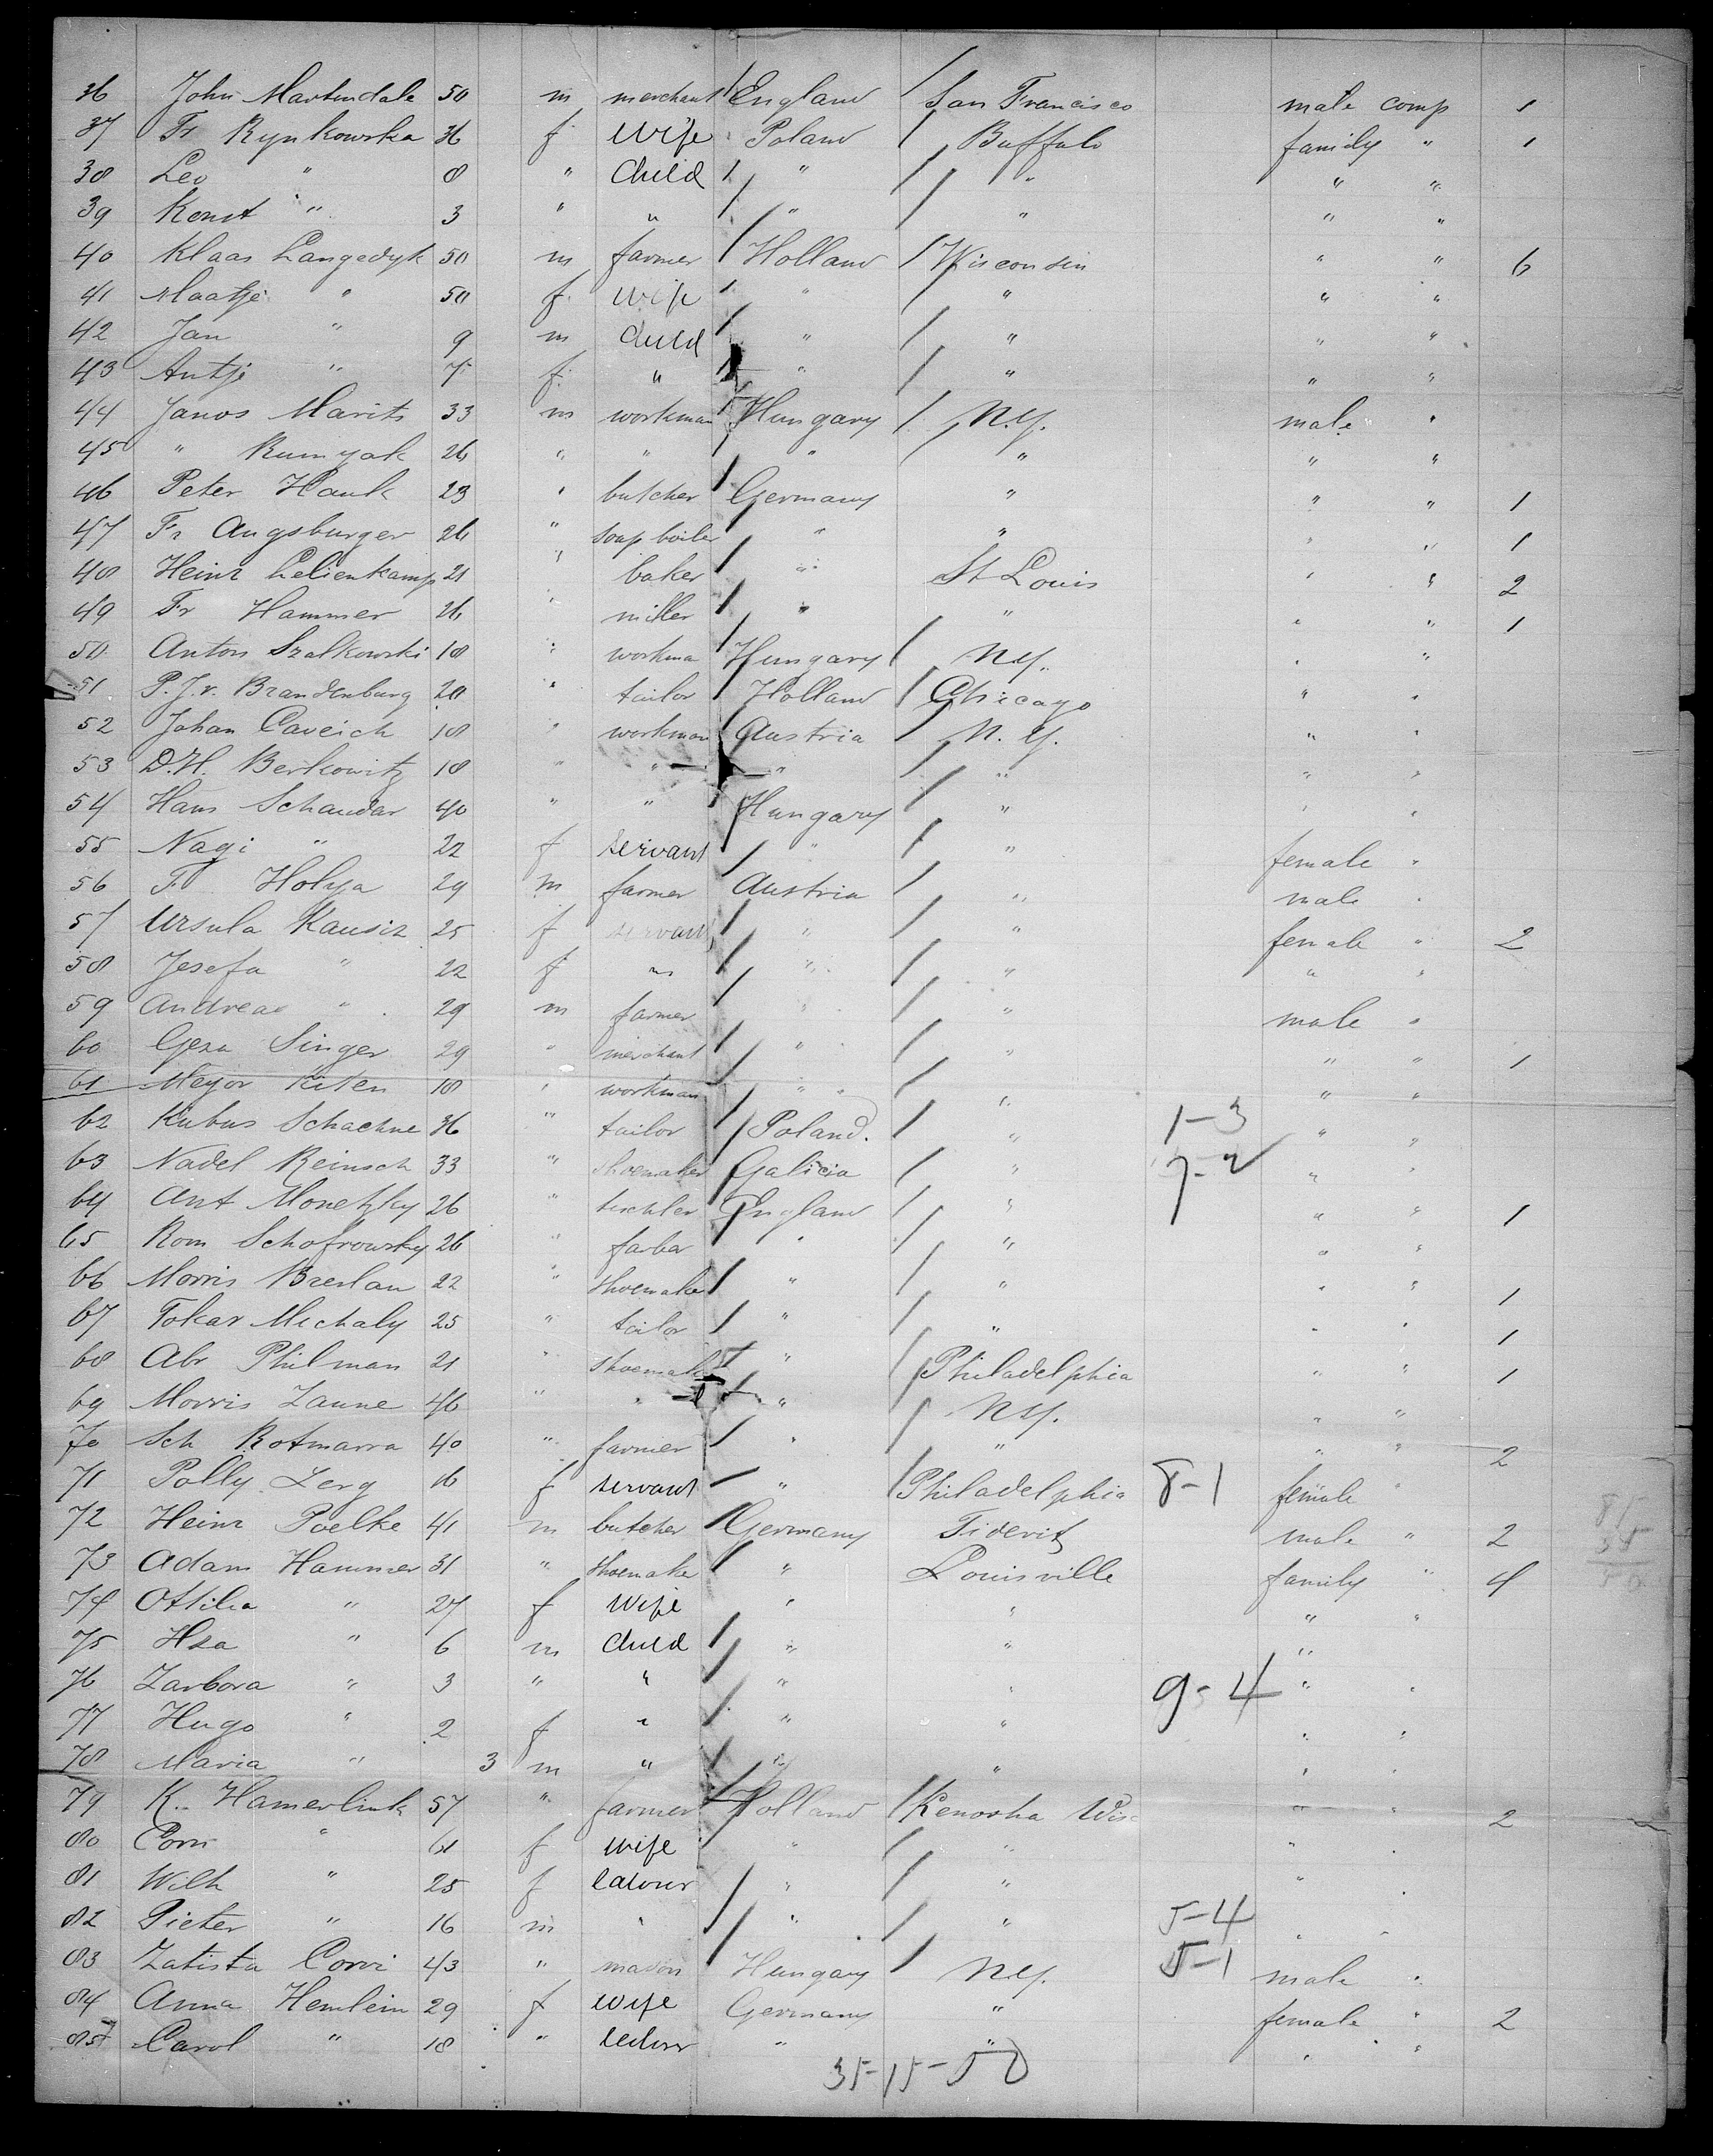 36 John Martindale 50 m merchant England San Francisco male comp 1
37 Fr Rynkowska 36 f wife Poland Buffalo family " 1
38 Leo " 8 " Child " " " "
39 Konst " 3 " " " " " "
40 Klaas Langedyk 50 m farmer Holland Wisconsin " " 6
41 Maatje " 50 f wife " " " "
42 Jan " 9 m Child " " " "
43 Antje " 7 f " " " " "
44 Janos Marits 33 m workman Hungary N.Y. male "
45 " Rumyak 26 " " " " " "
46 Peter Hauk 23 " butcher Germany " " " 1
47 Fr Augsburger 26 " soap boiler " " " " 1
48 Heinr Lelienkamp 21 " baker " St Louis " " 2
49 Fr Hammer 26 " miller " " " " 1
50 Anton Szalkowski 18 " workma Hungary N.Y. " "
51 P.J.v. Brandenburg 20 " tailor Holland Chicago " "
52 Johan Caveich 18 " workman Austria N.Y. " "
53 D.H. Berkowitz 18 " " " " " "
54 Hans Schandar 40 " " Hungary " " "
55 Nagi " 22 f servant " " female "
56 F. Holya 29 m farmer Austria " male "
57 Ursula Kausiz 25 f servant " " female " 2
58 Josefa " 22 f " " " " "
59 Andreas " 29 m farmer " " male "
60 Geza Singer 29 " merchant " " " " 1
61 Meyor Kiten 18 " workman " " " "
62 Kubus Schachne 36 " tailor Poland. " 1-3 " "
63 Nadel Reinsch 33 " shoemaker Galicia " 7-2 " "
64 Ant Monetzky 26 " tischler England " " " 1
65 Rom Schofrowsky 26 " farber " " " "
66 Morris Breslau 22 " shoemaker " " " " 1
67 Tokar Michaly 25 " tailor " " " " 1
68 Abr Philman 21 " shoemake " Philadelphia " " 1
69 Morris Zanne 46 " " " N.Y. " "
70 Sch Rotmarra 40 " farmer " " " " 2
71 Polly Zerg 16 f servant " Philadelphia 8-1 female "
72 Heinr Poelke 41 m butcher Germany Tiderit male " 2
73 Adam Hammer 31 " shoemaker " Louisville family " 4
74 Ottilia " 27 f wife " " " "
75 " 6 m Child " " "
76 Zarbora " 3 " " " " 9-4 " "
77 Hugo " 2 f " " " " "
78 Maria " 3 m " " " " "
79 K. Hamerlink 57 " farmer Holland Kenosha Wis " " 2
80 Corn " 61 f wife " " " "
81 Wilh " 25 f labour " " " "
82 Pieter " 16 m " " " 5-4 " "
83 Zatista Corvi 43 " mason Hungary N.Y. 5-1 male "
84 Anna Hemlein 29 f wife Germany " female " 2
85 Carol " 18 " labour " " " "
35-15-50